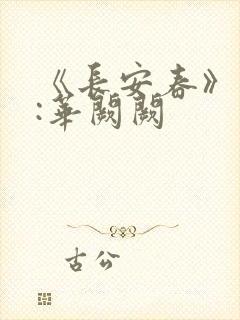 《長安春》
:華闕闕
古公